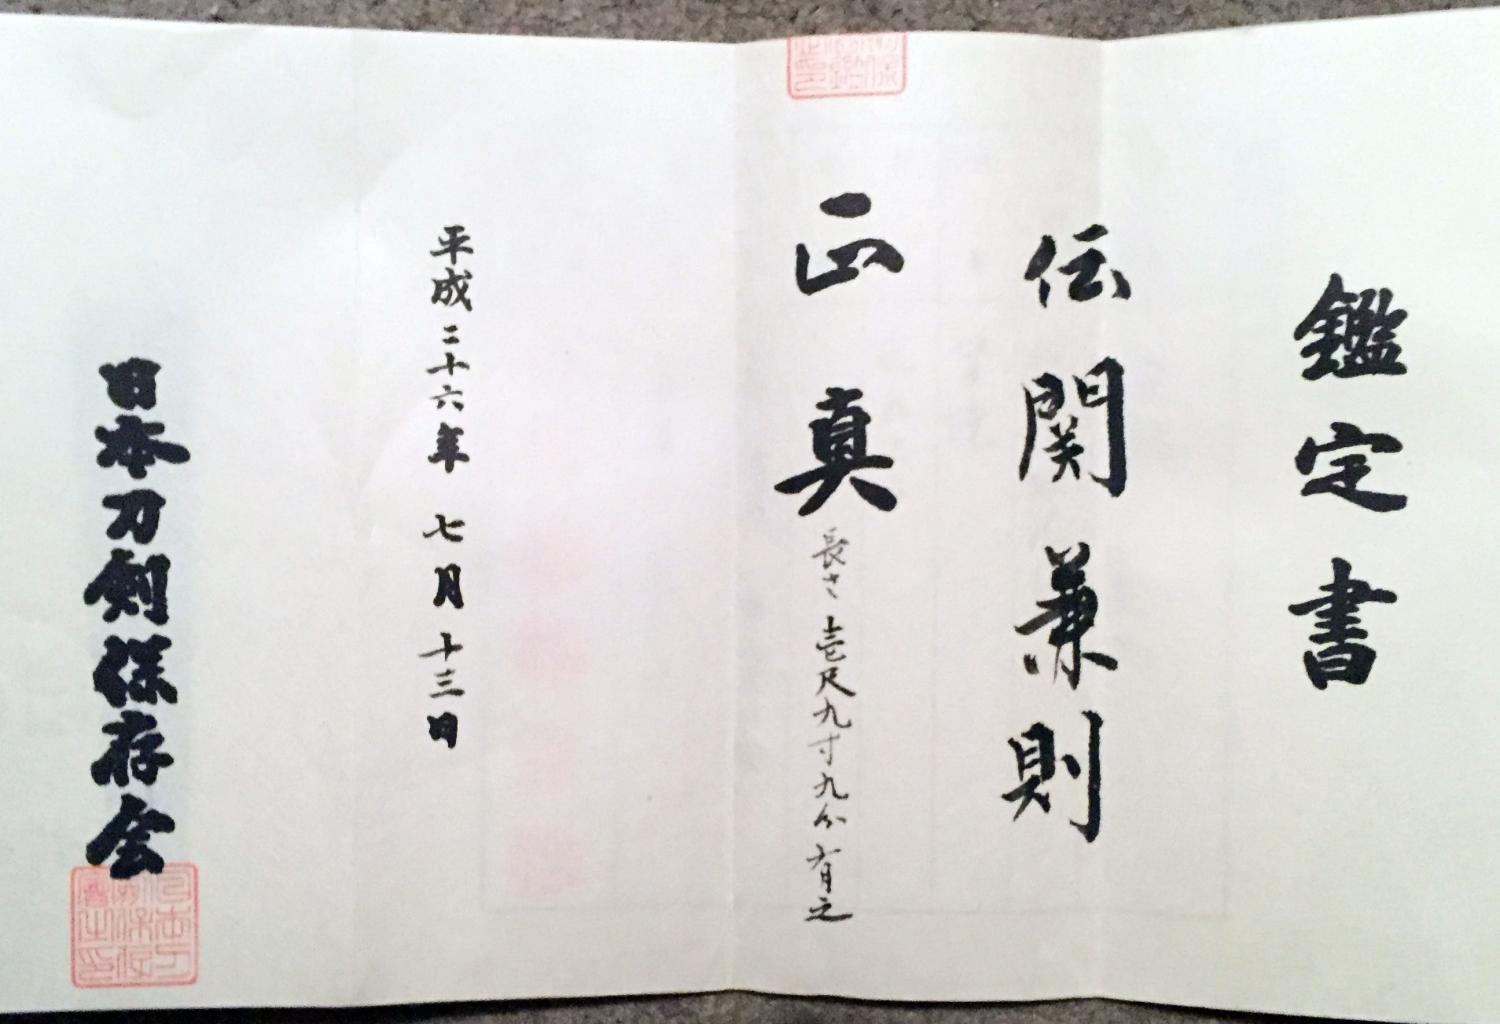 鑑定書
伝関兼則
正真
長さ壱尺九寸九分有之
平成二十六年 七月十三日
日本刀剣保存会